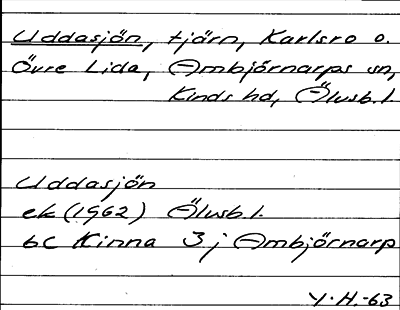 Uddasjön, tjärn, Karlsro o.
Övre Lida, Ambjörnarps sn,
Kinds hd, Älvsb.l.
Uddasjön
ek (1962) Älvsb.l.
bc Kinna 3 j Ambjörnarp
Y.H.-63